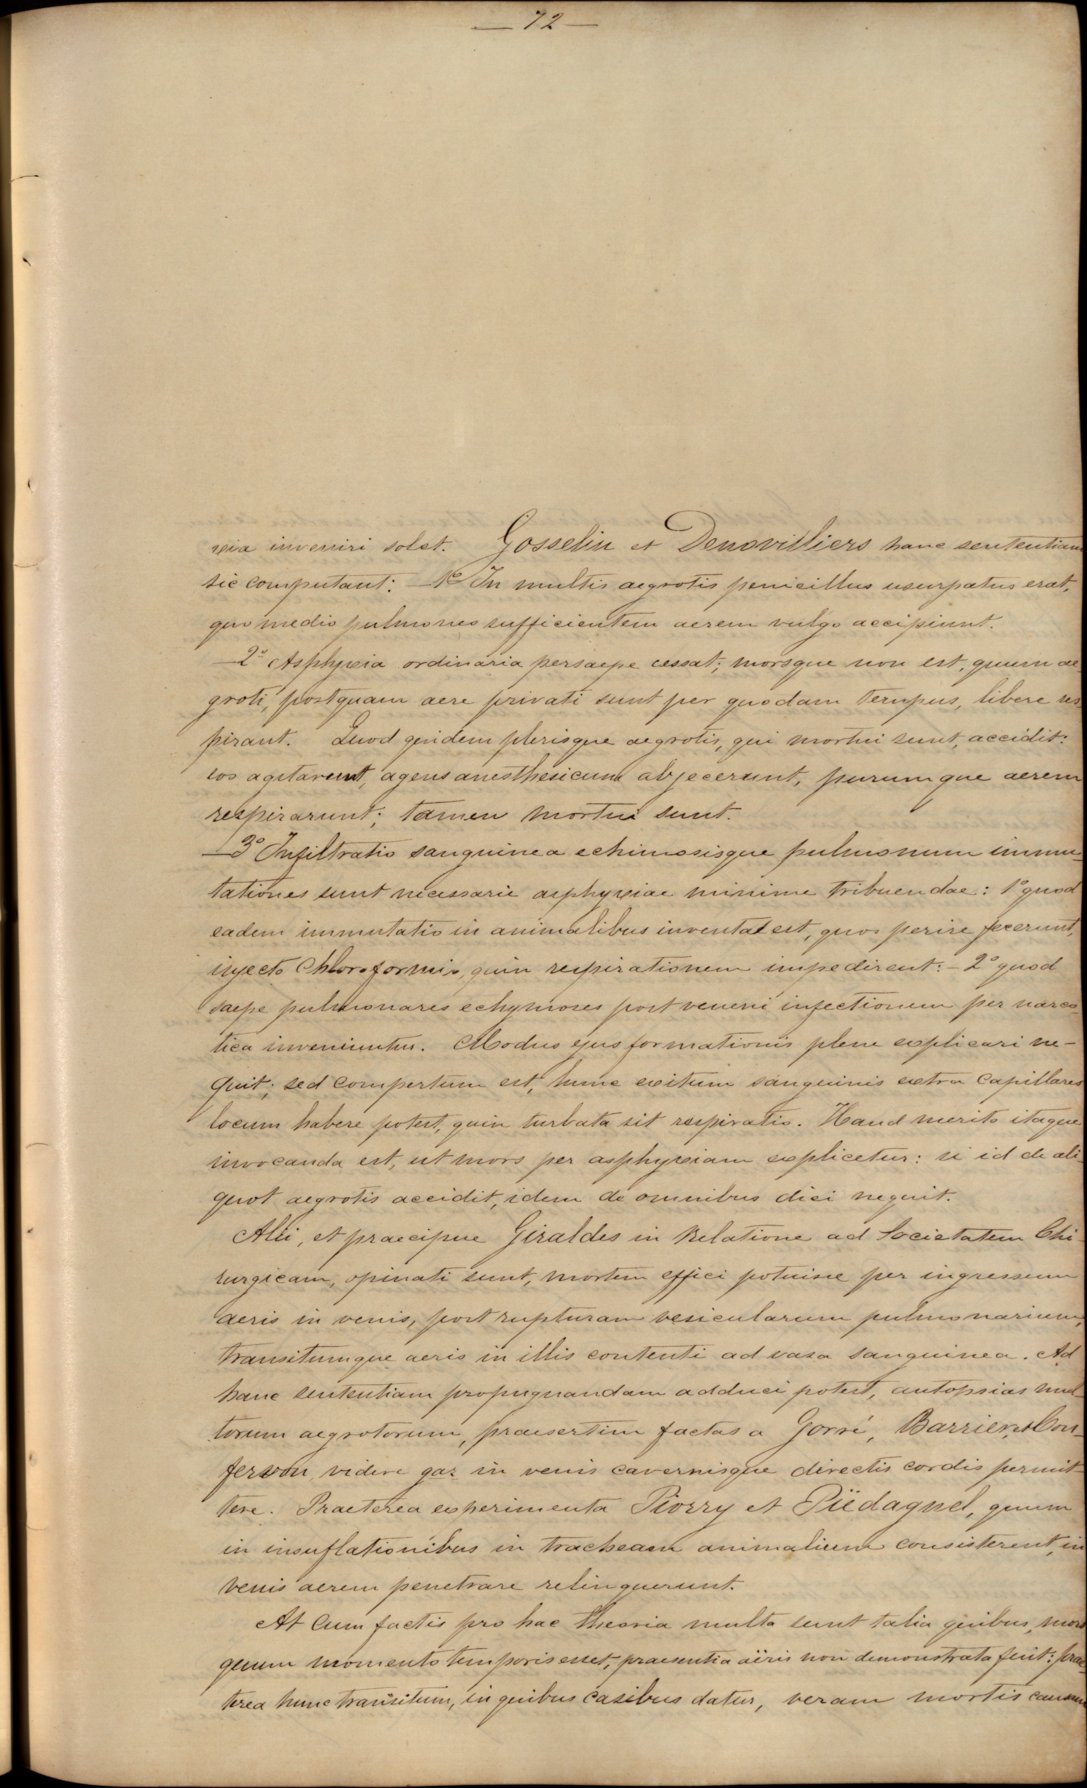 — 72 —
xia inveniri solet. Gosselin et Denovilliers hanc sententiam
sic computant: — 1º In multis aegrotis penicillus usurpatus erat,
quo medio pulmones sufficientem aerem vulgo accipiunt.
— 2º Asphyxia ordinaria persaepe cessat; morsque non est, quum ae
groti, postquam aere privati sunt per quodam tempus, libere res
pirant. Quod quidem plerisque aegrotis, qui mortui sunt, accidit:
eos agitarunt, agens anesthesicum abjecerunt, purumque aerem
respirarunt; tamen mortui sunt.
— 3º Infiltratio sanguinea echimosisque pulmonum immu-
tationes sunt necessarie asphyxiae minime tribuendae: 1º quod
eadem immutatio in animalibus inventa est, quos perire fecerunt,
injecto Chloroformio, quin respirationem impedirent: — 2º quod
saepe pulmonares echymoses post veneni infectionem per narco-
tica inveniuntur. Modus ejus formationis plene explicari ne-
quit; sed compertum est, hunc exitum sanguinis extra capillares
locum habere potest, quin turbata sit respiratio. Haud merito itaque
invocanda est, ut mors per asphyxiam explicetur: si id de ali
quot aegrotis accidit, idem de omnibus dici nequit.
Alii, et praecipue Giraldes in Relatione ad Societatem Chi-
rurgicam, opinati sunt, mortem effici potuisse per ingressum
aeris in venis, post rupturam vesicularum pulmonarium,
transitumque aeris in illis contenti ad vasa sanguinea. Ad
hanc sententiam propugnandam adduci potest, autopsias mul
torum aegrotorum, praesertim factas a Gorré, Barrier, et Con-
fervon videre gaz in venis cavernisque directis cordis permit
tere. Praeterea experimenta Piorry et Piëdagnel, quum
in insuflationibus in tracheam animalium consisterent, in
venis aerem penetrare relinquerunt.
At cum factis pro hac theoria multa sunt talia quibus, mors
quum momento temporis esset, praesentia aëris non demonstrata fuit: prae
terea hunc transitum, in quibus casibus datur, veram mortis causam